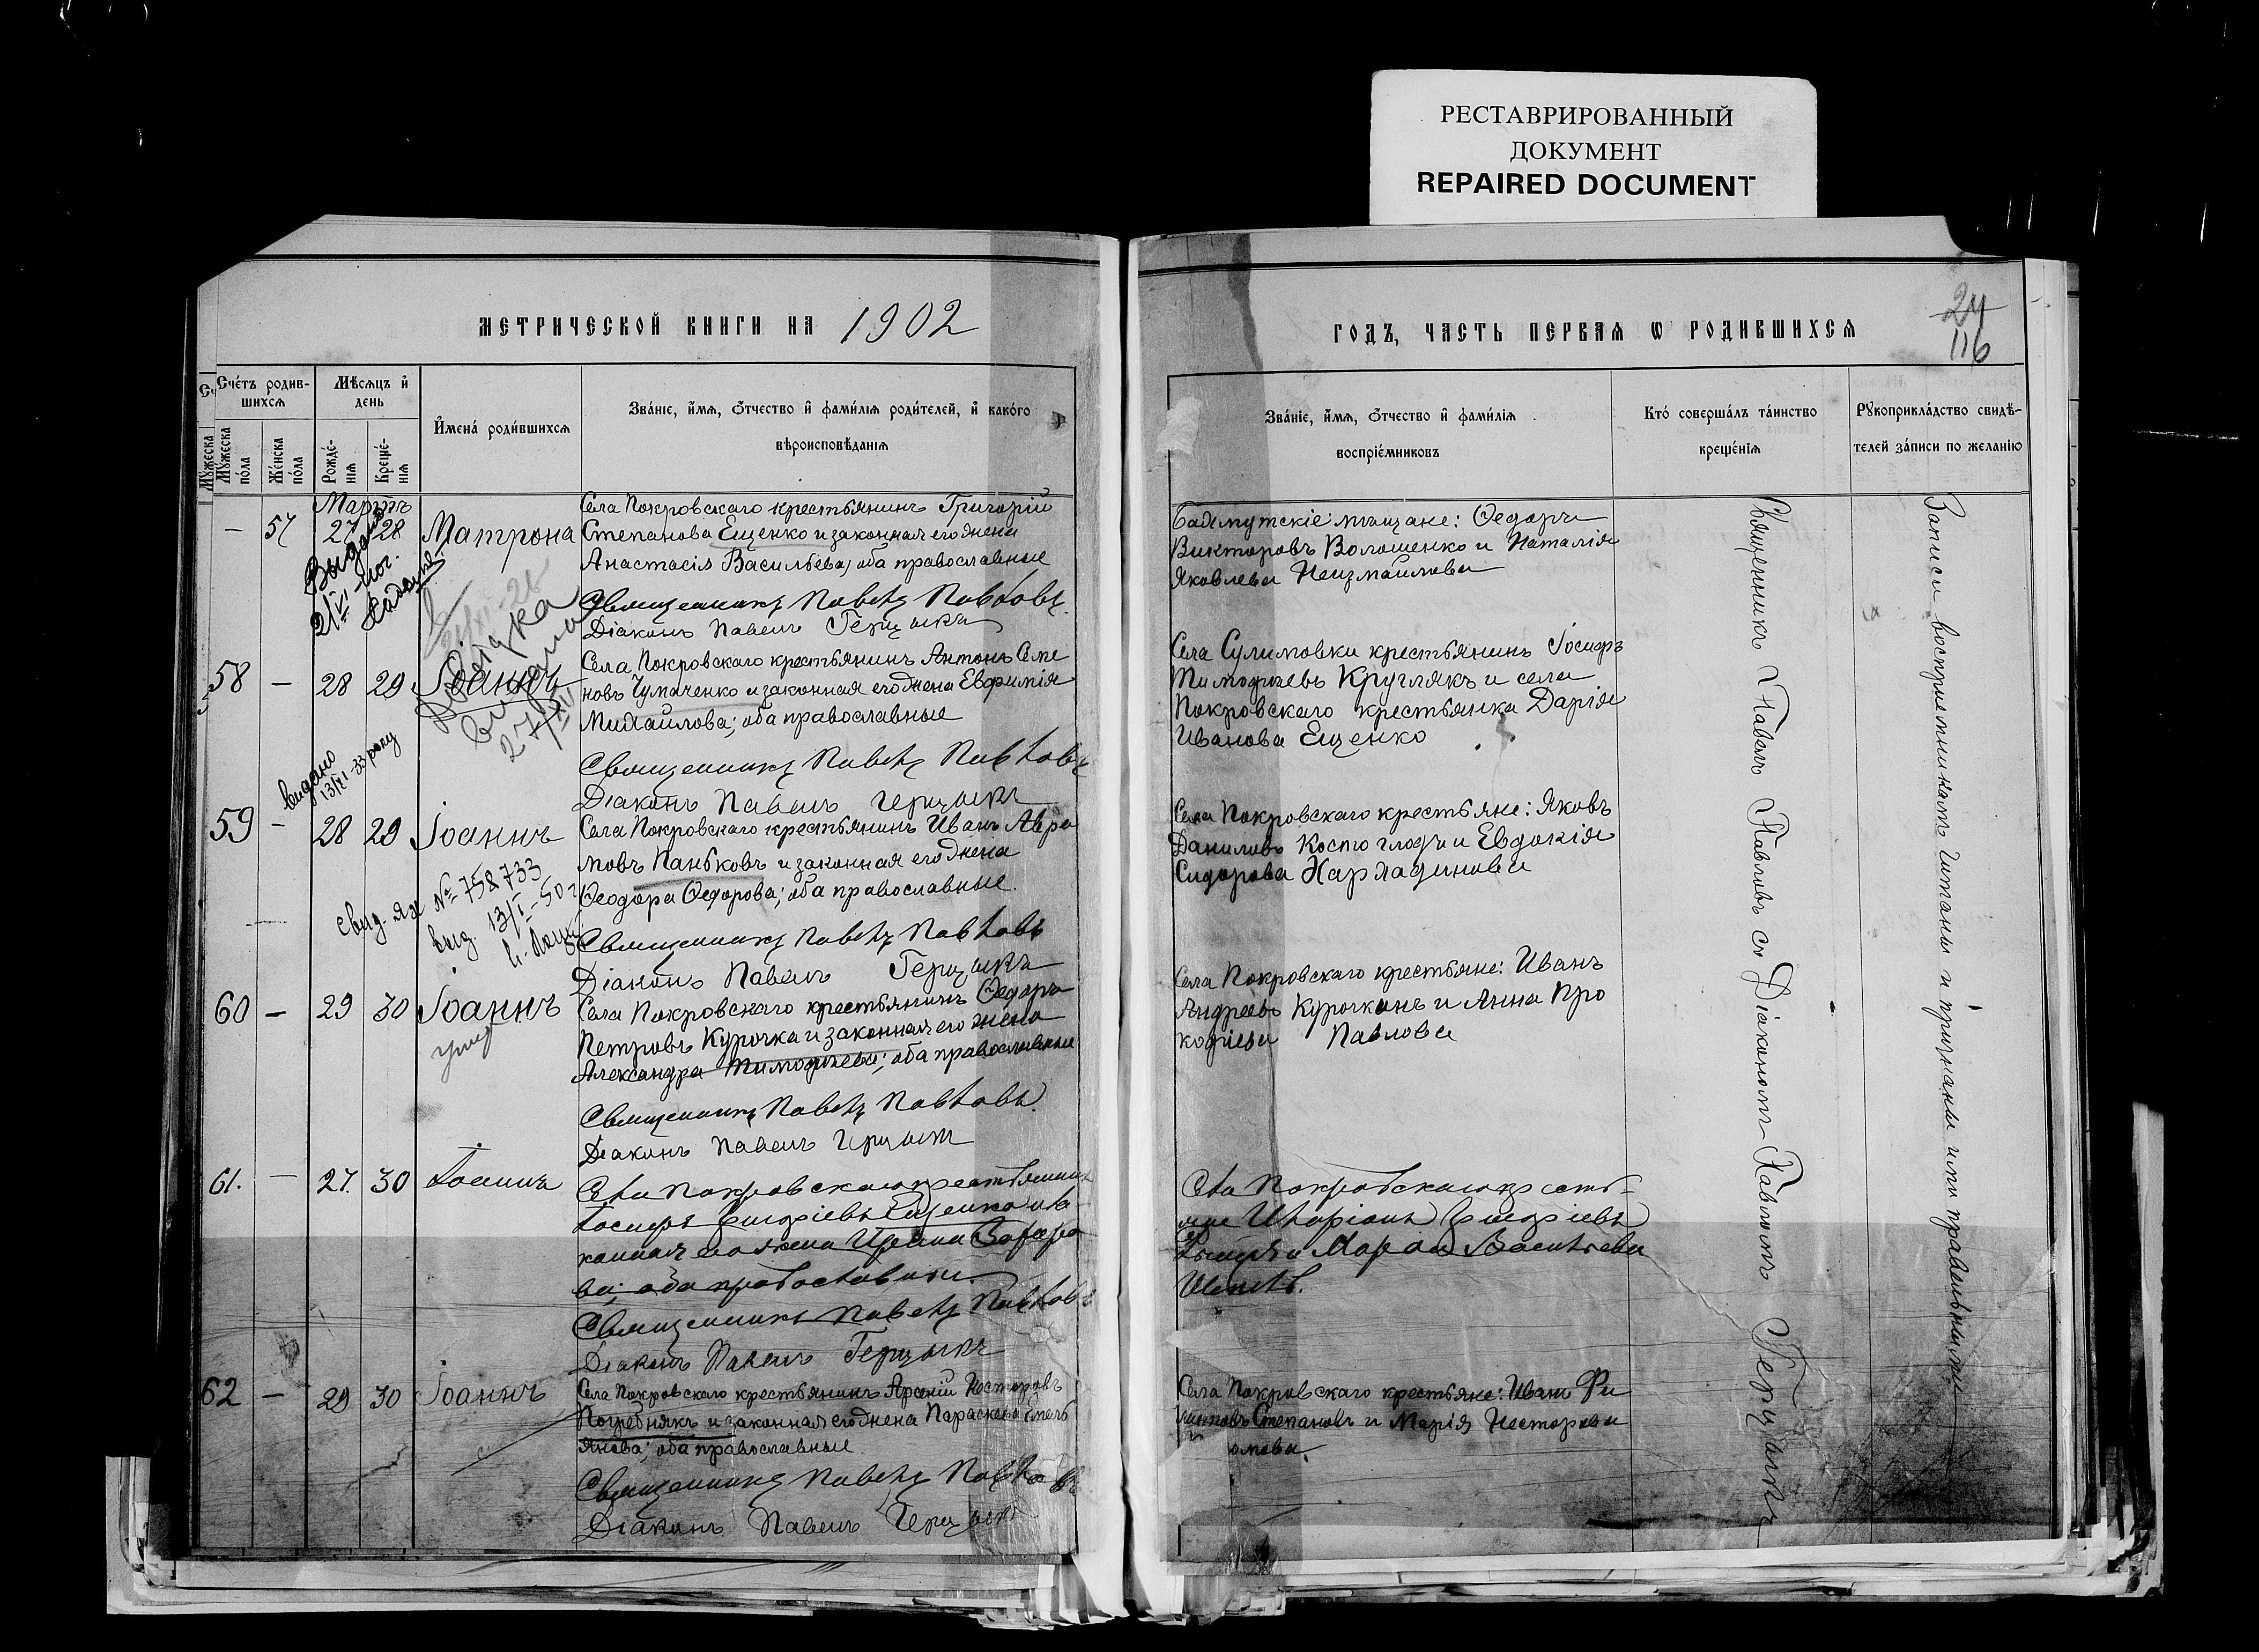 РЕСТАВРИРОВАННЫЙ
ДОКУМЕНТ
REPAIRED DOCUMENT
МЕТРИЧЕСКОЙ КНИГИ НА 1902
Счетъ родив-
шихся
Мѣсяцъ и
день
Имена родившихся
Званіе, имя, отчество и фамилія родителей, и какого
вѣроисповѣданія
Мужеска
пола
Женска
пола
Рожде-
нія
Креще-
нія
Мартъ
— 57 27 28 Матрона
Села Покровскаго крестьянинъ Григорій
Степанова Ещенко и законная его жена
Анастасія Васильева, оба православные
Священникъ Павелъ Павловъ
Діаконъ Павелъ Герцыкъ
Выдано
58 — 28 29 Іоаннъ
Села Покровскаго крестьянинъ Антонъ Семе
новъ Чумаченко и законная его жена Евфимія
Михайлова; оба православные
Священникъ Павелъ Павловъ
Діаконъ Павелъ Герцыкъ
Довідка
видана
27/XII
видано
13/VI-33 року
59 — 28 29 Іоаннъ
Села Покровскаго крестьянинъ Иванъ Авра
мовъ Паньковъ и законная его жена
Ѳеодора Ѳедорова; оба православные.
Священникъ Павелъ Павловъ
Діаконъ Павелъ Герцыкъ
№ 758733
выд. 13/I-50 г
60 — 29 30 Іоаннъ
умер
Села Покровскаго крестьянинъ Ѳедоръ
Петровъ Курочка и законная его жена
Александра Тимофѣева; оба православные
Священникъ Павелъ Павловъ
Діаконъ Павелъ Герцыкъ
61. — 27. 30 Іоаннъ
Села Покровскаго крестьянинъ
Іосифъ Григоріевъ Ещенко и за-
конная его жена Ирина Захаро
ва; оба православные.
Священникъ Павелъ Павловъ
Діаконъ Павелъ Герцыкъ
62 — 29 30 Іоаннъ
Села Покровскаго крестьянинъ Арсеній Несторовъ
Погребнякъ и законная его жена Параскева Емель
янова; оба православные
Священникъ Павелъ Павловъ
Діаконъ Павелъ Герцыкъ
ГОДЪ, ЧАСТЬ ПЕРВАЯ Ѡ РОДИВШИХСЯ
24
116
Званіе, имя, отчество и фамилія
воспріемниковъ
Кто совершалъ таинство
крещенія
Рукоприкладство свидѣ-
телей записи по желанію
Бахмутскіе мѣщане: Ѳедоръ
Викторовъ Волошенко и Наталія
Яковлева Неизмайлова
Села Сулимовки крестьянинъ Іосифъ
Тимофѣевъ Круглякъ и села
Покровскаго крестьянка Дарія
Иванова Ещенко
Села Покровскаго крестьяне: Яковъ
Даниловъ Костоглодъ и Евдокія
Сидорова
Села Покровскаго крестьяне: Иванъ
Андреевъ Курочкинъ и Анна Про
кофіева Павлова
Села Покровскаго кресть-
яне Иларіонъ Григоріевъ
и Марія Васильева
Села Покровскаго крестьяне: Иванъ Фи
липовъ Степановъ и Марія Несторова
Священникъ Павелъ Павловъ съ Діакономъ Павломъ Герцыкъ
Записи воспріемникамъ читаны и признаны ими правильными